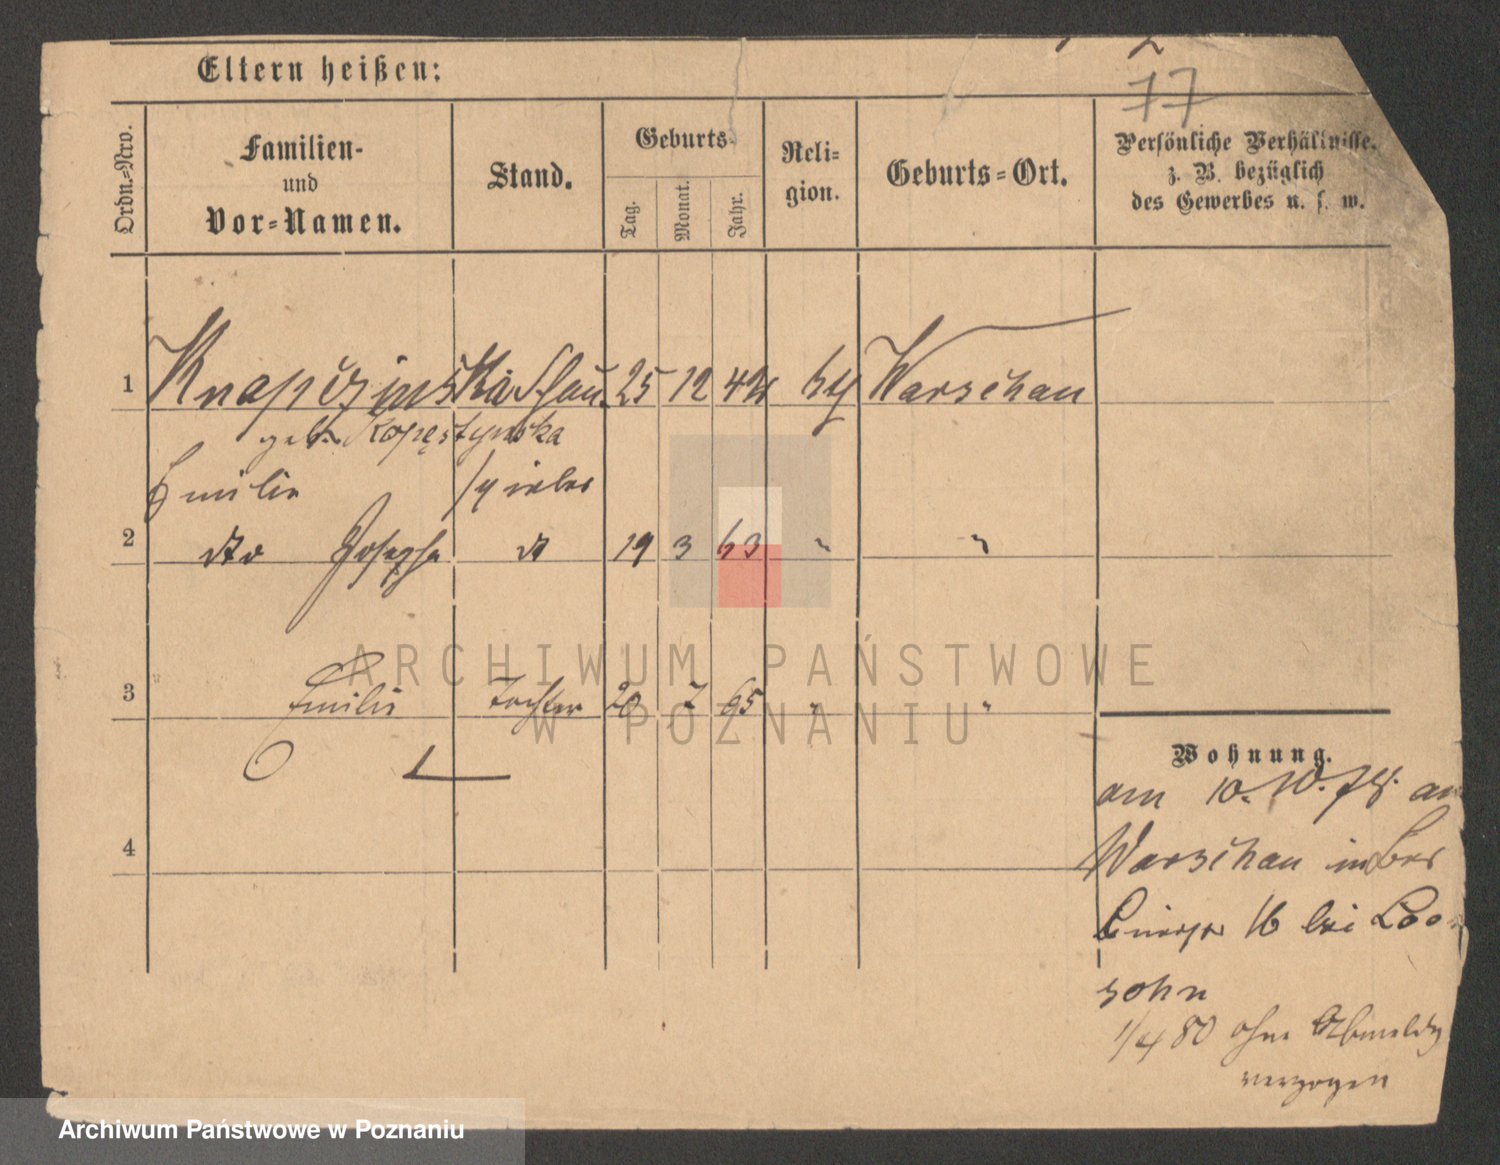 Eltern heißen:
77
Ordn.-Nro.
Familien-
und
Vor-Namen.
Stand.
Geburts-
Tag.
Monat.
Jahr.
Reli-
gion.
Geburts-Ort.
Persönliche Verhältnisse,
z. B. bezüglich
des Gewerbes u. s. w.
1 Knapczinska Frau 25 12 42 Warschau
geb. Kopęstynska
Emilie
2 dto Josepha dt 19 3 63 " "
3 Emilie Tochter 20 7 65 " "
4
Wohnung.
am 10. 10. 78. an
Warschau
16 bei Loo-
sohn
1/4 80 ohne Abmeldg
verzogen
ARCHIWUM PAŃSTWOWE
W POZNANIU
Archiwum Państwowe w Poznaniu